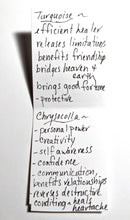 Turquoise ~
efficient healer
releases limitations
benefits friendship
bridges heaven &
earth
brings good fortune
- protective
Chrysocolla ~
- personal power
- Creativity
- self awareness
- confidence
- communication,
benefits relationships
reverses destructive
conditing - heals
heartache